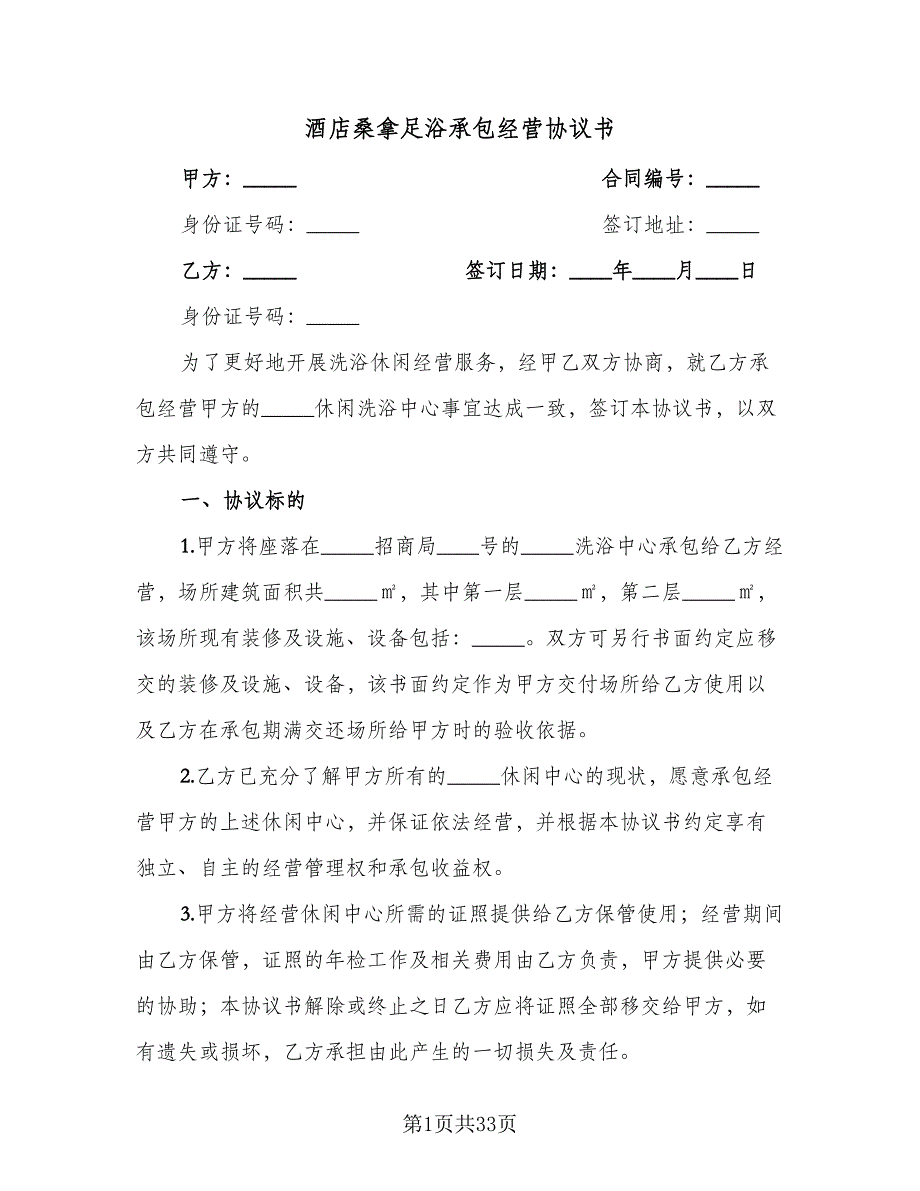 酒店桑拿足浴承包经营协议书
甲方：_____ 合同编号：_____
身份证号码：_____ 签订地址：_____
乙方：_____ 签订日期：____年____月____日
身份证号码：_____
为了更好地开展洗浴休闲经营服务，经甲乙双方协商，就乙方承
包经营甲方的_____休闲洗浴中心事宜达成一致，签订本协议书，以双
方共同遵守。
一、协议标的
1.甲方将座落在_____招商局____号的_____洗浴中心承包给乙方经
营，场所建筑面积共_____㎡，其中第一层_____㎡，第二层_____㎡，
该场所现有装修及设施、设备包括：_____。双方可另行书面约定应移
交的装修及设施、设备，该书面约定作为甲方交付场所给乙方使用以
及乙方在承包期满交还场所给甲方时的验收依据。
2.乙方已充分了解甲方所有的_____休闲中心的现状，愿意承包经
营甲方的上述休闲中心，并保证依法经营，并根据本协议书约定享有
独立、自主的经营管理权和承包收益权。
3.甲方将经营休闲中心所需的证照提供给乙方保管使用；经营期间
由乙方保管，证照的年检工作及相关费用由乙方负责，甲方提供必要
的协助；本协议书解除或终止之日乙方应将证照全部移交给甲方，如
有遗失或损坏，乙方承担由此产生的一切损失及责任。
第1页共33页